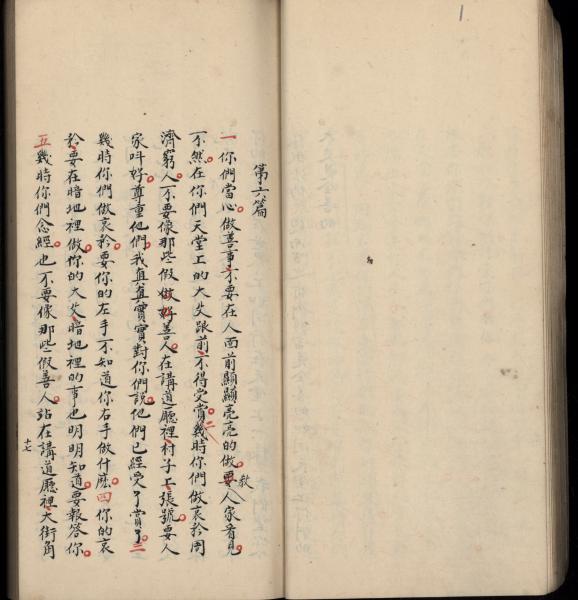 1
第六篇
一你們當心。做善事、不要在人面前顯顯亮亮的做、要教人家看見。
不然、在你們天堂上的大父跟前、不得受賞。二幾時你們做哀矜周
濟窮人、不要像那些假做好善人、在講道廳裡、村子上、張號、要人
家呌好、尊重他們、我真真實實對你們說、他們已經受了賞了。三
幾時你們做哀矜、要你的左手不知道你右手做什麽。四你的哀
矜、要在暗地裡做、你的大父、暗地裡的事也明明知道、要報答你。
五幾時你們念經、也不要像那些假善人、站在講道廳裡、大街角
十七